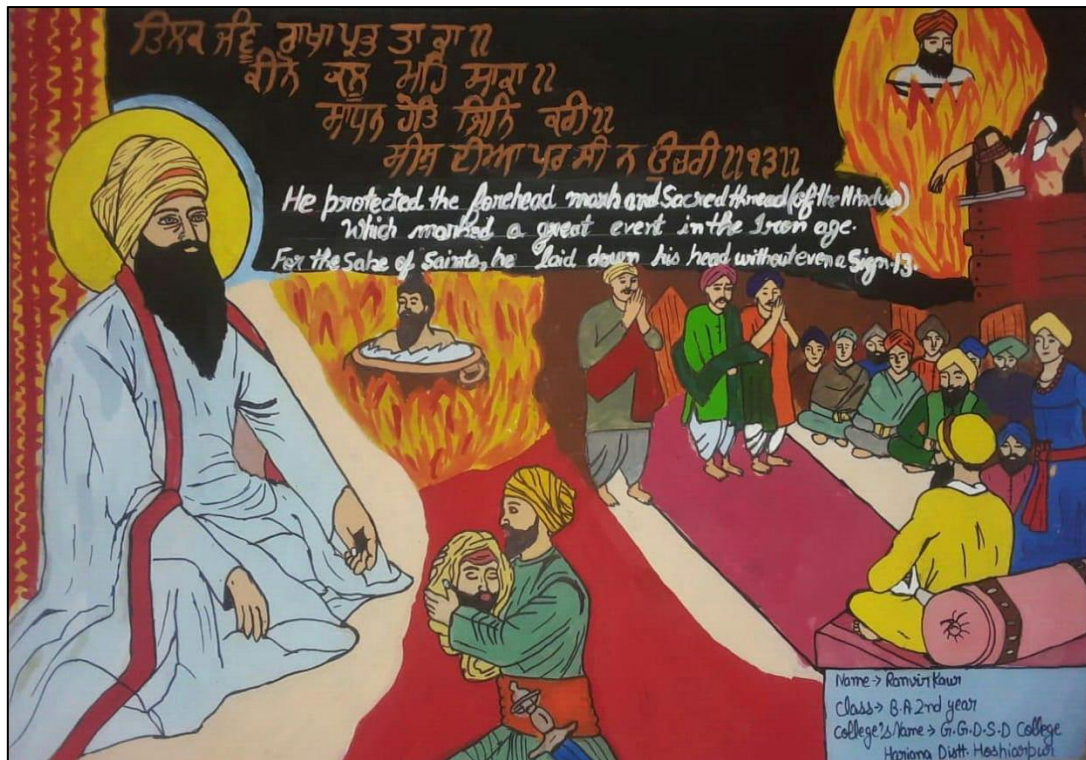 ਤਿਲਕ ਜੰਞੂ ਰਾਖਾ ਪ੍ਰਭ ਤਾ ਕਾ॥
ਕੀਨੋ ਕਲੂ ਮਹਿ ਸਾਕਾ॥
ਸਾਧਨ ਹੇਤਿ ਜਿਨਿ ਕਰੀ॥
ਸੀਸੁ ਦੀਆ ਪਰ ਸੀ ਨ ਉਚਰੀ॥੧੩॥
He protected the forehead mark and Sacred thread (of the Hindus)
Which marked a great event in the Iron age.
For the Sake of Saints, he laid down his head without even a Sign.13.
Name → Ranvir Kaur
Class → B.A 2nd year
College's Name → G.G.D.S.D College
Hariana Distt. Hoshiarpur